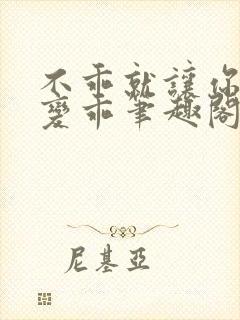 不乖就讓你
變乖筆趣閣
尼基亞